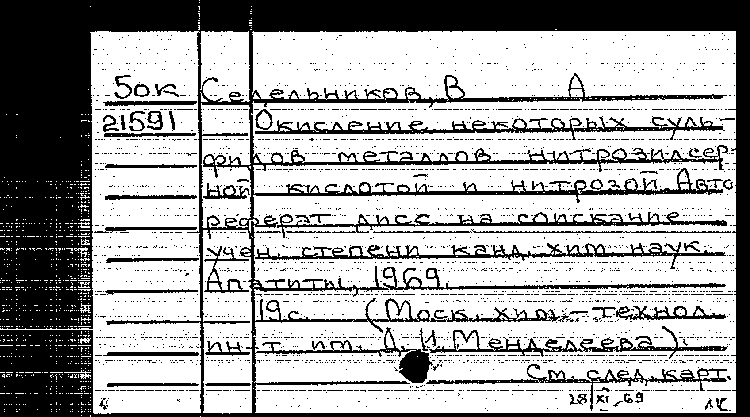 50к Селельников, В А
21591 Окисление некоторых суль-
фидов металлов нитрозилсер-
ной кислотой и нитрозой. Авто
реферат дисс на соискание
учен. степени канд. хим наук.
Апатиты, 1969.
19с. (Моск. хим.-технол.
ин-т им. Д. И. Менделеева).
См. след. карт.
28/XI-69